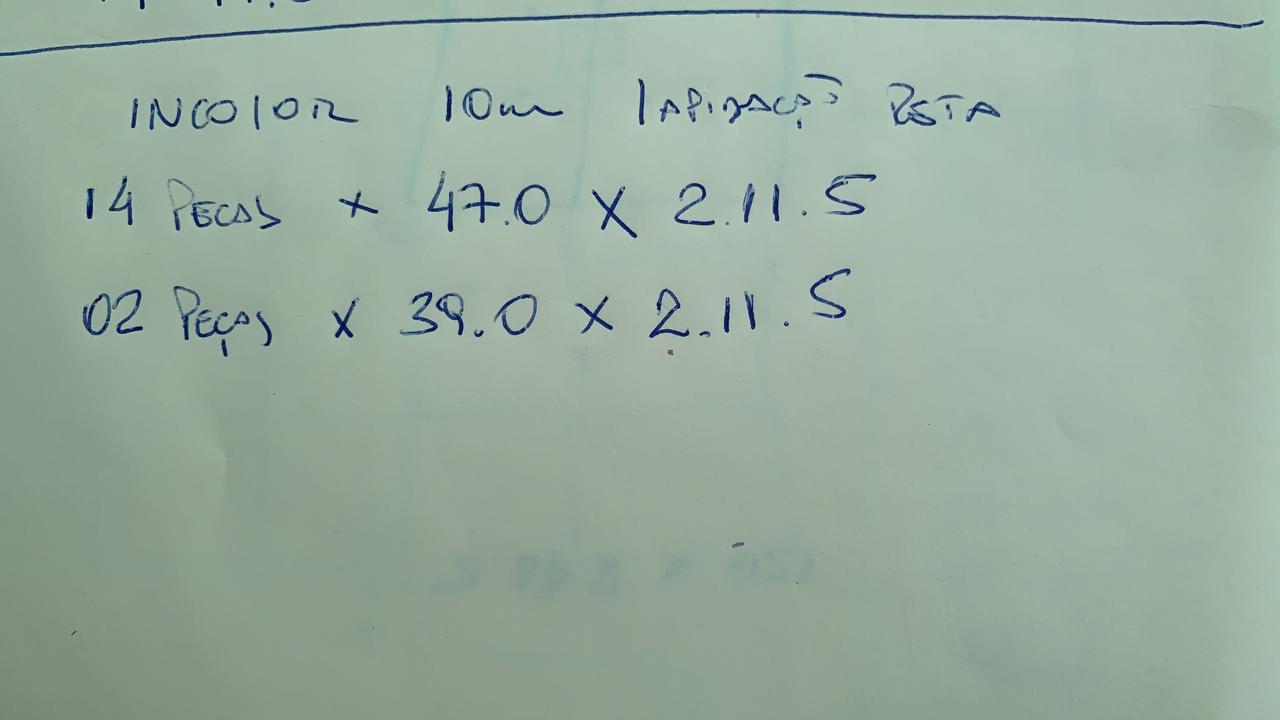 INCOLOR 10mm LAPIDAÇÃO RETA
14 PEÇAS x 47.0 X 2.11.5
02 PEÇAS x 39.0 x 2.11.5